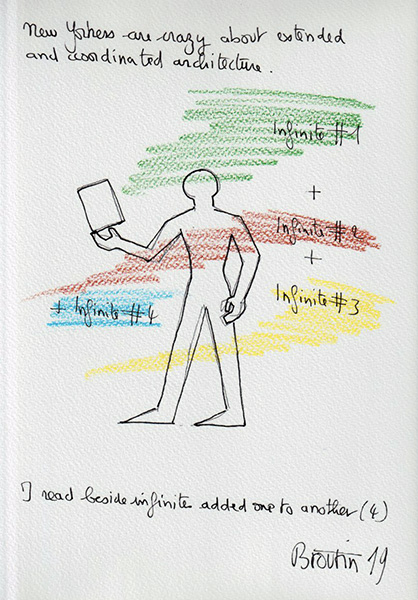 New Yorkers are crazy about extended
and coordinated architecture.
Infinite #1
+
Infinite #2
+
Infinite #3
+ Infinite #4
I read beside infinite added one to another (4)
Broutin 19